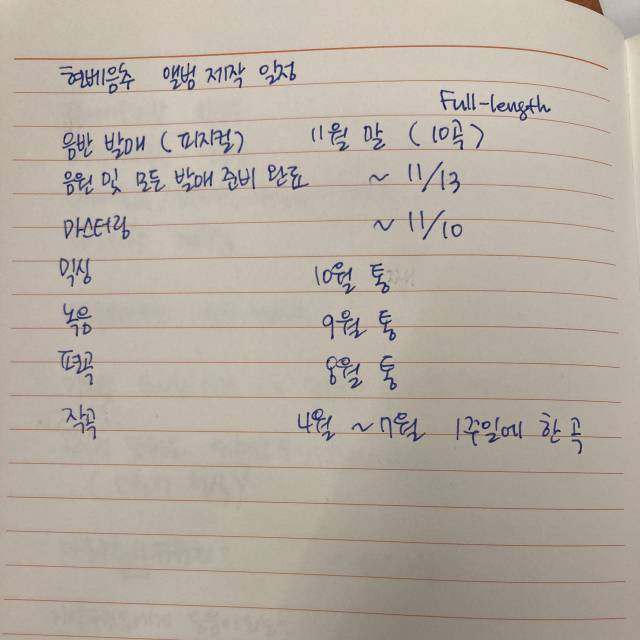 현베음주 앨범 제작 일정
Full-length
음반 발매 (피지컬) 11월 말 (10곡)
음원 및 모든 발매 준비 완료 ~ 11/13
마스터링 ~ 11/10
믹싱 10월 통
녹음 9월 통
편곡 8월 통
작곡 4월 ~ 7월 1주일에 한 곡